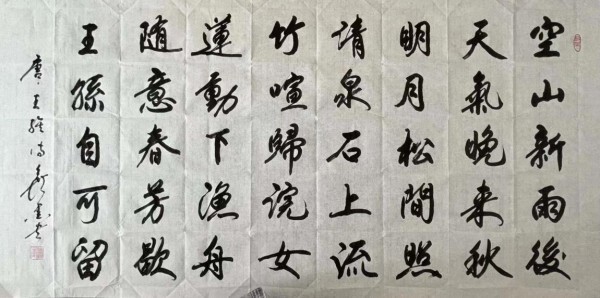 空山新雨後
天氣晚来秋
明月松間照
请泉石上流
竹喧歸浣女
蓮動下漁舟
随意春芳歇
王孫自可留
唐王維诗